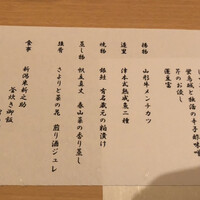 螢烏賊と独活の辛子酢味噌
芹のお浸し
蓮豆富
揚物
山形牛メンチカツ
造里
津本式熟成魚二種
焼物
銀鱈 有名蔵元の粕漬け
蒸し物
帆立真丈 春山菜の香り蒸し
強肴
さよりと菜の花 煎り酒ジュレ
食事
新潟米新之助
釜炊き御飯